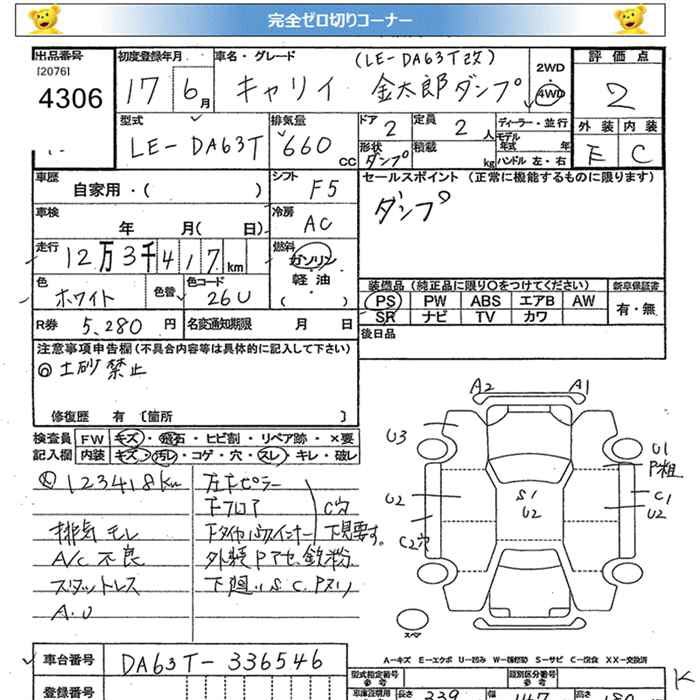 完全ゼロ切りコーナー
出品番号 初度登録年月 車名・グレード (LE-DA63T改) 2WD 評価点
[2076]
4306 17 6月 キャリイ 金太郎ダンプ 4WD 2
型式 排気量 ドア 2 定員 2人 ディーラー・並行 外装 内装
モデル年式 年
LE-DA63T 660cc 形状 ダンプ 積載 kg ハンドル 左・右 E C
車歴 自家用・( ) シフト F5 セールスポイント (正常に機能するものに限ります)
車検 年 月( 日) 冷房 AC ダンプ
走行 12万3千417km 燃料 ガソリン
軽油
( )
色 ホワイト 色替 色コード 26U
装備品 (純正品に限り○をつけてください) 新車保証書
PS PW ABS エアB AW 有・無
SR ナビ TV カワ
R券 5,280円 名変通知期限 月 日 後日品
注意事項申告欄 (不具合内容等は具体的に記入して下さい)
◎土砂禁止
修復歴 有 [箇所 ]
検査員 FW キズ・飛石・ヒビ割・リペア跡・×要
記入欄 内装 キズ・汚レ・コゲ・穴・スレ・キレ・破レ
123418Km 左下ピラー
下フロア C穴
排気モレ 下見要す。
A/C不良
スタットレス 下廻リS.C.Pヌリ
A.U
A2 A1
U3 U1
P粗
U2 S1 C1
U2 U2
C2穴
スペア
A-キズ E-エクボ U-凹み W-補修跡 S-サビ C-腐食 XX-交換済
車台番号 DA63T-336546
型式指定番号 参考 類別区分番号 参考
登録番号 長さ 339 147 180